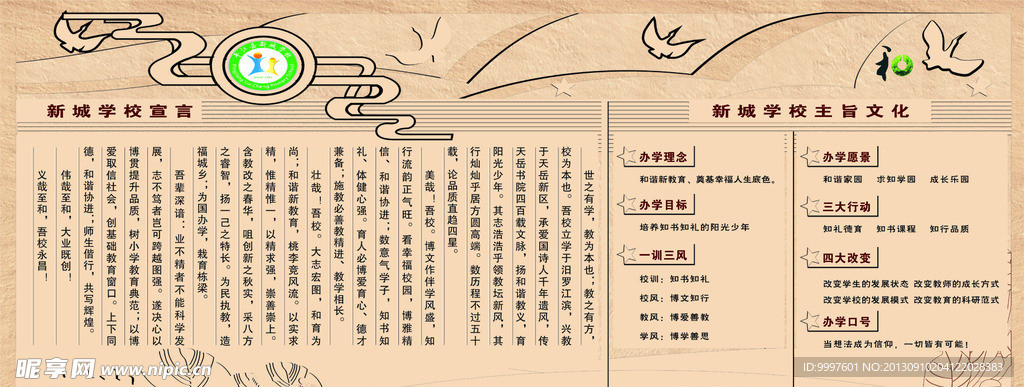 新城学校宣言
世之有学，教为本也；教之有方，
校为本也。吾校立学于汨罗江滨，兴教
于天岳新区，承爱国诗人千年遗风，传
天岳书院四百载文脉，扬和谐教义，育
阳光少年。其志浩浩乎领教坛新风，其
行灿灿乎居方圆高端。数历程不过五十
载，论品质直趋四星。
美哉！吾校。博文作伴学风盛，知
行流韵正气旺。看幸福校园，博雅精
信、和谐协进；数意气学子，知书知
礼、体健心强。育人必博爱育心、德才
兼备；施教必善教精进、教学相长。
壮哉！吾校。大志宏图，和育为
尚；和谐新教育，桃李竞风流。以实求
精，惟精惟一，以精求强，崇善崇上。
含教改之春华，咀创新之秋实，采八方
之睿智，扬一己之特长。为民执教，造
福城乡；为国办学，栽育栋梁。
吾辈深谙：业不精者不能科学发
展，志不笃者岂可跨越图强。遂决心以
博贯提升品质，树小学教育典范；以博
爱取信社会，创基础教育窗口。上下同
德，和谐协进；师生偕行，共写辉煌。
伟哉至和，大业既创！
义哉至和，吾校永昌！
和
新城学校主旨文化
办学理念
和谐新教育、奠基幸福人生底色。
办学目标
培养知书知礼的阳光少年
一训三风
校训：知书知礼
校风：博文知行
教风：博爱善教
学风：博学善思
办学愿景
和谐家园 求知学园 成长乐园
三大行动
知礼德育 知书课程 知行品质
四大改变
改变学生的发展状态 改变教师的成长方式
改变学校的发展模式 改变教育的科研范式
办学口号
当想法成为信仰，一切皆有可能！
昵享网 www.nipic.cn
NO:20130910204122028383
ID:9997601